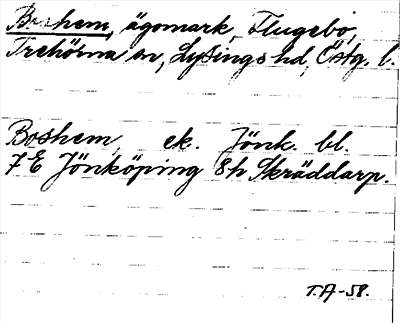 Boshem, ägomark, Flugebo,
Trehörna sn, Lysings hd, Östg. l.
Boshem, ek. Jönk. bl.
7 E Jönköping 8h Skräddarp.
T.A-58.